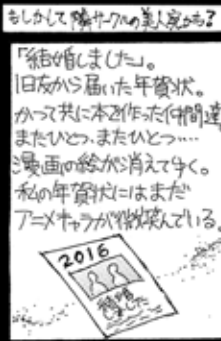 もしかして隣サークルの美人宛かも?
「結婚しました」。
旧友から届いた年賀状。
かつて共に本を作った仲間達
またひとつ、またひとつ‥‥
漫画の絵が消えてゆく。
私の年賀状にはまだ
アニメキャラが微笑んでいる。
2016
結婚
しました